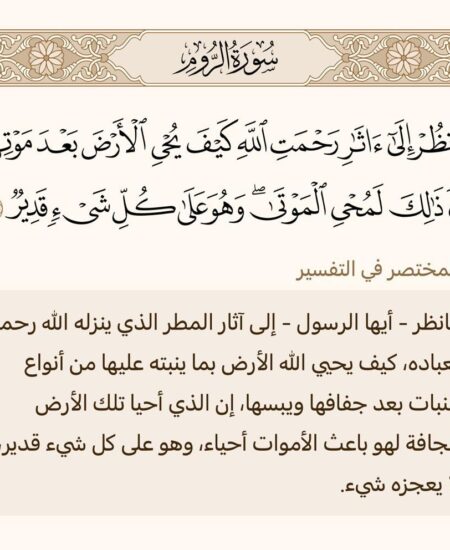 سُورَةُ الرُّومِ
نظُرْ إِلَىٰٓ ءَاثَٰرِ رَحْمَتِ ٱللَّهِ كَيْفَ يُحْىِ ٱلْأَرْضَ بَعْدَ مَوْتِ
ذَٰلِكَ لَمُحْىِ ٱلْمَوْتَىٰ ۖ وَهُوَ عَلَىٰ كُلِّ شَىْءٍ قَدِيرٌ
لمختصر في التفسير
انظر - أيها الرسول - إلى آثار المطر الذي ينزله الله رحم
عباده، كيف يحيي الله الأرض بما ينبته عليها من أنواع
نبات بعد جفافها ويبسها، إن الذي أحيا تلك الأرض
جافة لهو باعث الأموات أحياء، وهو على كل شيء قدير،
يعجزه شيء.